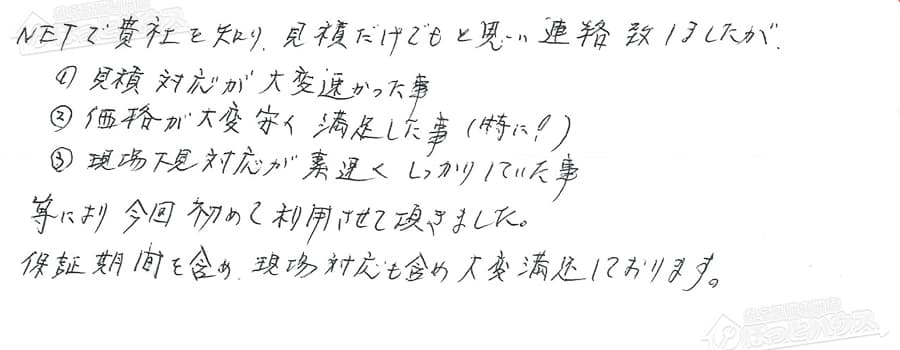 NETで貴社を知り、見積だけでもと思い連絡致しましたが、
① 見積対応が大変速かった事
② 価格が大変安く満足した事(特に!)
③ 現場下見対応が素速くしっかりしていた事
等により今回初めて利用させて頂きました。
保証期間を含め、現場対応も含め大変満足しております。